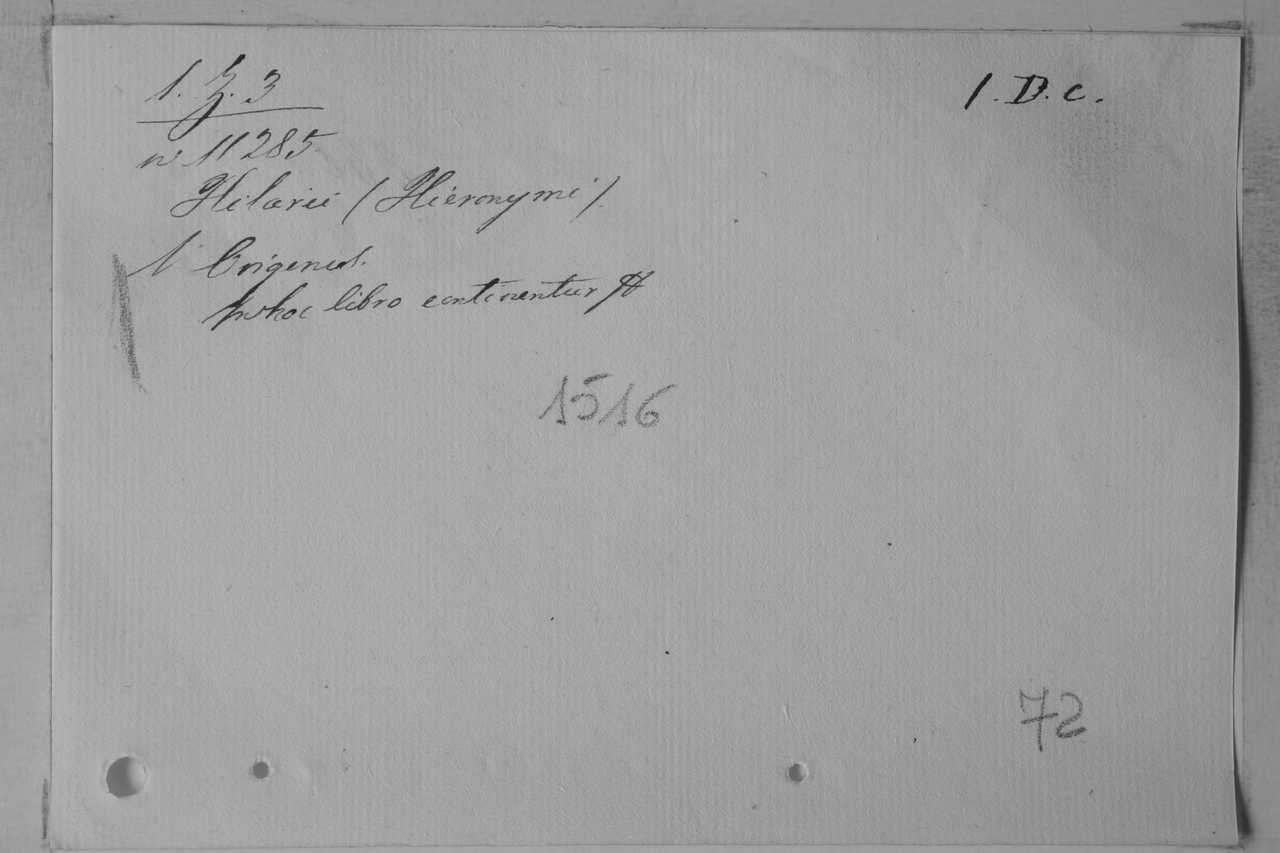 1. Z. 3
I. D. c.
n 11285
Hilarii (Hieronymi)
1 Origenes.
In hoc libro continentur
1516
72